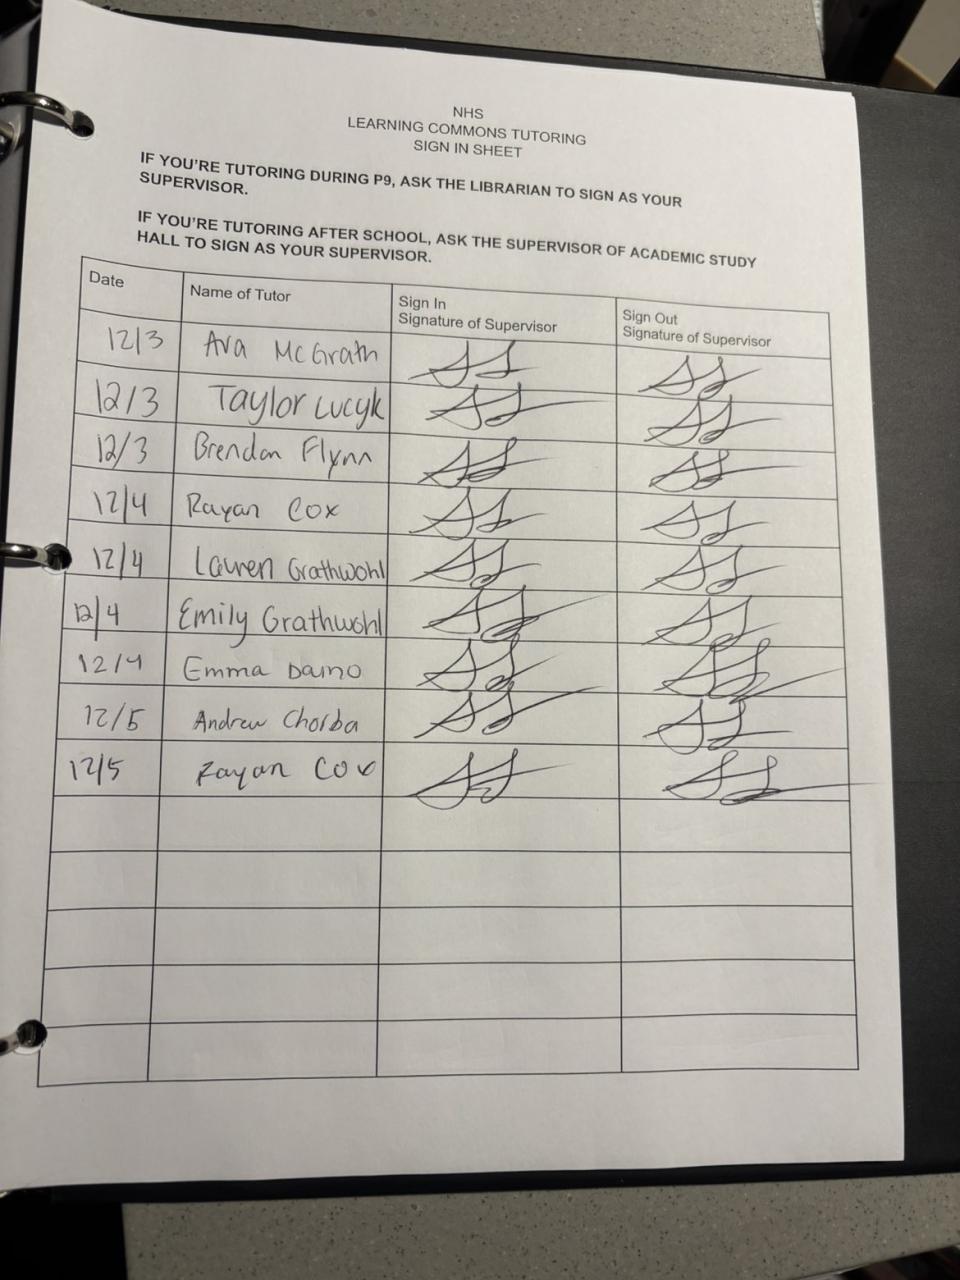 NHS
LEARNING COMMONS TUTORING
SIGN IN SHEET
IF YOU'RE TUTORING DURING P9, ASK THE LIBRARIAN TO SIGN AS YOUR
SUPERVISOR.
IF YOU'RE TUTORING AFTER SCHOOL, ASK THE SUPERVISOR OF ACADEMIC STUDY
HALL TO SIGN AS YOUR SUPERVISOR.
Date Name of Tutor Sign In Signature of Supervisor Sign Out Signature of Supervisor
12/3 Ava McGrath
12/3 Taylor Lucyk
12/3 Brendan Flynn
12/4 Rayan Cox
12/4 Lauren Grathwohl
12/4 Emily Grathwohl
12/4 Emma Daino
12/5 Andrew Chorba
12/5 Rayan Cox